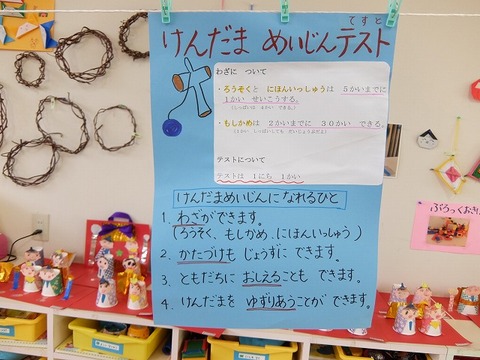 てすと
けんだま めいじんテスト
わざに ついて
・ろうそくと にほんいっしゅうは 5かいまでに
1かい せいこうする。
・もしかめは 2かいまでに 30かい できる。
テストについて
テストは 1にち 1かい
けんだまめいじんに なれるひと
1. わざができます。
(ろうそく、もしかめ、にほんいっしゅう)
2. かたづけも じょうずに できます。
3. ともだちに おしえることも できます。
4. けんだまを ゆずりあうことが できます。
ぶろっくおきば